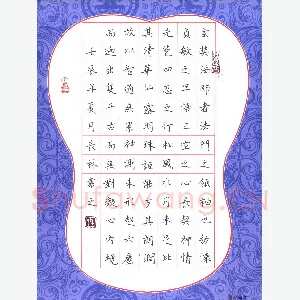 玄奘法師者法門之領袖也幼懷
貞敏早悟三空之心長契神情
先苞四忍之行松風水月未足比
其清華仙露明珠詎能方其朗潤
故以智通無累神測未形超六塵
而迥出隻千古而無對凝心内境
壬辰年夏月長秋書之